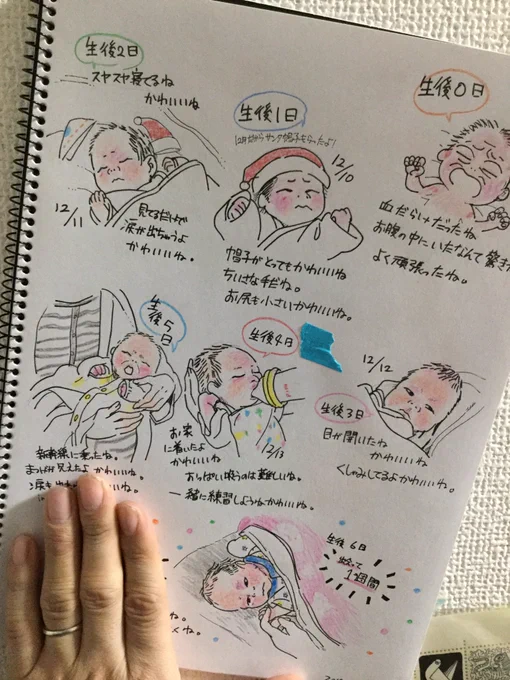 生後0日
血だらけだったね
お腹の中にいたなんて驚き
よく頑張ったね。
生後1日
12月だからサンタ帽子もらったよ!
12/10
帽子がとってもかわいいね
ちいさな手だね。
お尻も小さいかわいいね。
生後2日
スヤスヤ寝てるね
かわいいね
12/11
見てるだけで
涙が出ちゃうよ
かわいいね。
12/12
生後3日
目が開いたね
かわいいね
くしゃみしてるよかわいいね。
生後4日
お家
に着いたよ
かわいいね
12/13
おっぱい吸うのは難しいね。
一緒に練習しようねかわいいね。
生後5日
新幹線に乗ったね。
かわいいね。
いいね。
生後6日
祝って
1週間
ね。
ね。